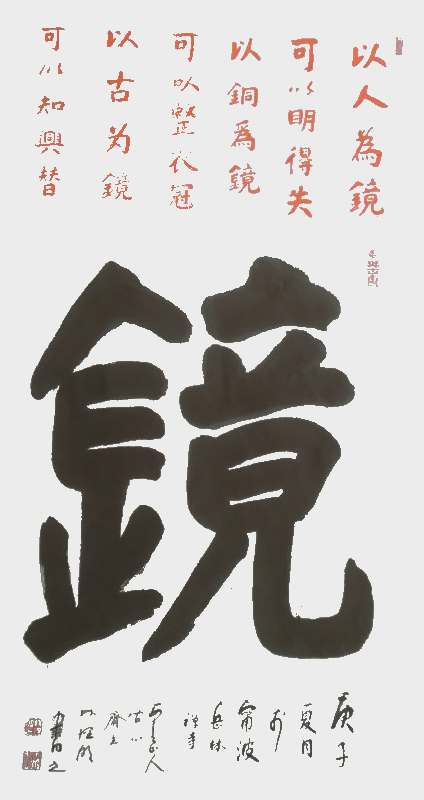 以人為鏡
可以明得失
以銅爲鏡
可以整衣冠
以古为鏡
可以知興替
鏡
庚子
夏月
於
甯波
岳林
禅寺